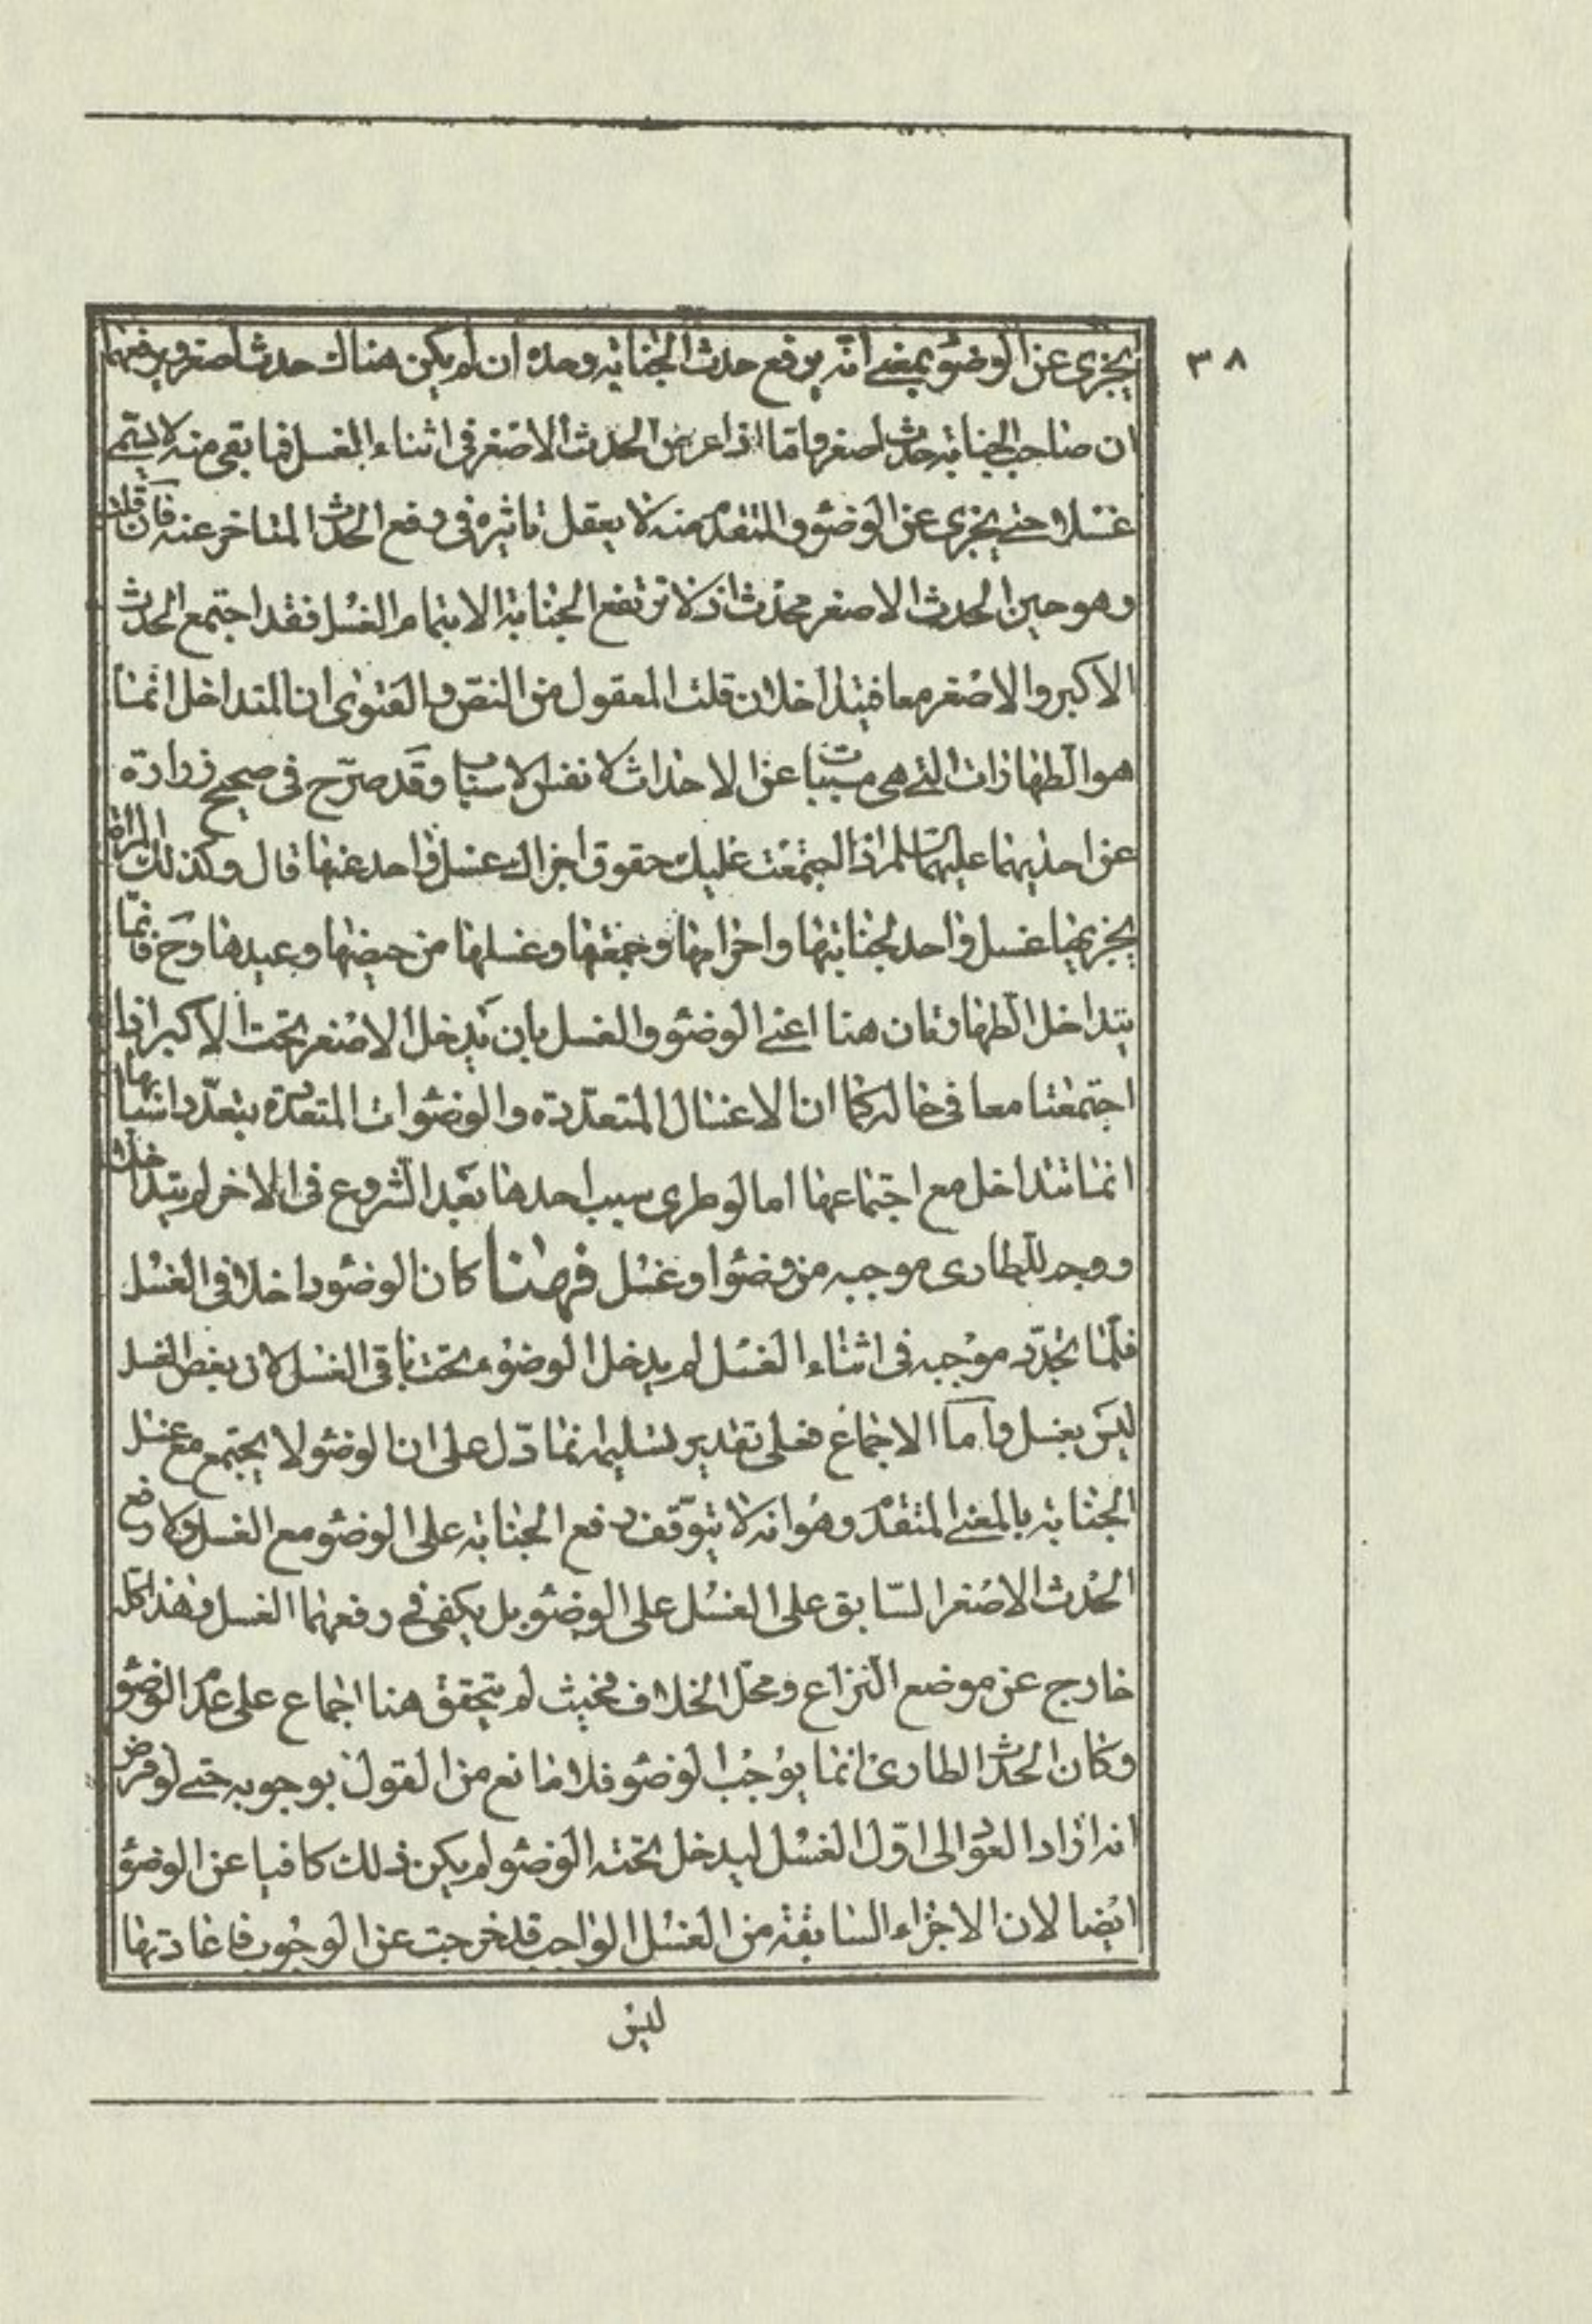 ٣٨
يجزى عن الوضوء بمعنى انه يرفع حدث الجنابة وحده ان لم يكن هناك حدث اصغر ويرفعهما
ان صاحب الجنابة حدث اصغر واما اذا عرض الحدث الاصغر فى اثناء الغسل فما بقى منه لا يسمى
غسلا حتى يجزى عن الوضوء والمتقدم منه لا يعقل تاثيره فى رفع الحدث المتاخر عنه فان قلت
وهو حين الحدث الاصغر محدث اذ لا ترتفع الجنابة الا بتمام الغسل فقد اجتمع الحدث
الاكبر والاصغر معا فيتداخلان قلت المعقول من النص والفتوى ان المتداخل انما
هو الطهارات التى هى مسببات عن الاحداث لا نفس الاسباب وقد صرح فى صحيح زرارة
عن احديهما عليهما السلم اذا اجتمعت عليك حقوق اجزاك غسل واحد عنها قال وكذلك المراة
يجزيها غسل واحد لجنابتها واحرامها وجمعتها وغسلها من حيضها وعيدها وح فانما
يتداخل الطهارتان هنا اعنى الوضوء والغسل بان يدخل الاصغر تحت الاكبر اذا
اجتمعتا معا فى حالة كما ان الاغسال المتعددة والوضوات المتعددة بتعدد اسبابها
انما تتداخل مع اجتماعها اما لو طرى سبب احدها بعد الشروع فى الاخر لم يتداخلا
ووجد للطارى موجبه من وضوء او غسل فههنا كان الوضوء داخلا فى الغسل
فلما تجدد موجبه فى اثناء الغسل لم يدخل الوضوء تحت باقى الغسل لان بعض الغسل
ليس بغسل واما الاجماع فعلى تقدير تسليمه انما دل على ان الوضوء لا يجتمع مع غسل
الجنابة بالمعنى المتقدم وهو انه لا يتوقف رفع الجنابة على الوضوء مع الغسل ولا رفع
الحدث الاصغر السابق على الغسل على الوضوء بل يكفى فى رفعهما الغسل وهذا كله
خارج عن موضع النزاع ومحل الخلاف فحيث لم يتحقق هنا اجماع على عدم الوضوء
وكان الحدث الطارى انما يوجب الوضوء فلا مانع من القول بوجوبه حتى لو فرض
انه اراد العود الى اول الغسل ليدخل تحته الوضوء لم يكن ذلك كافيا عن الوضوء
ايضا لان الاجزاء السابقة من الغسل الواجب قد خرجت عن الوجوب فاعادتها
ليس